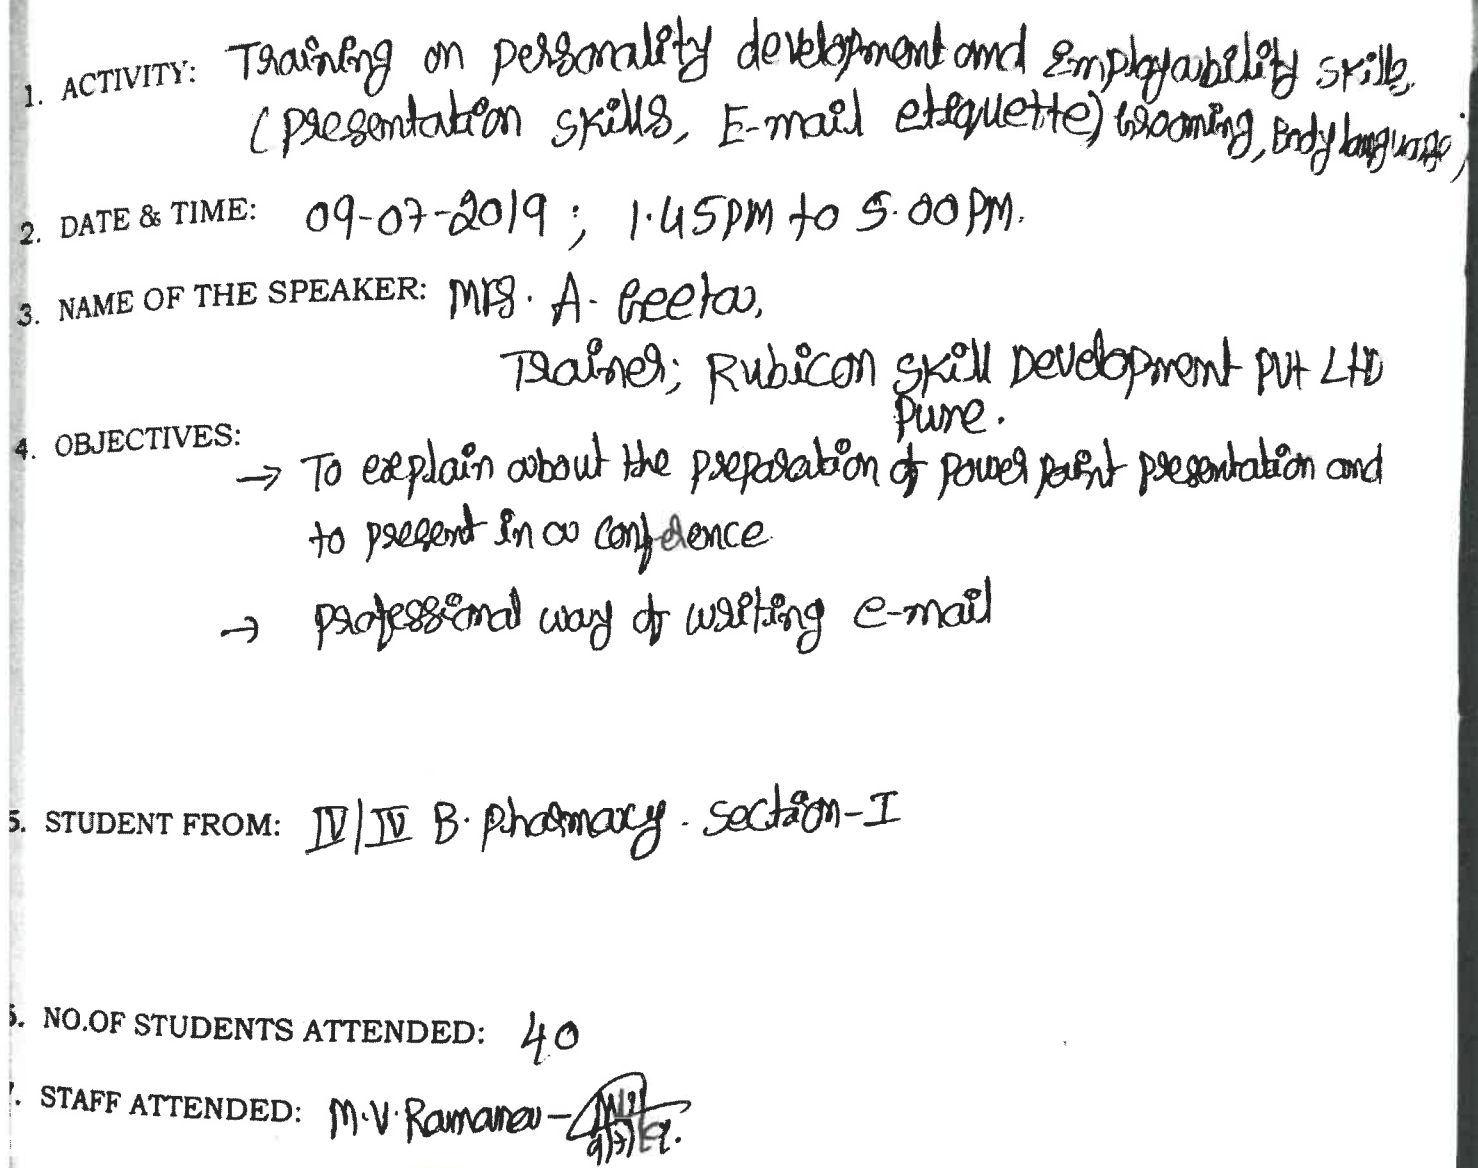 1. ACTIVITY: Training on personality development and Employability skills,
(presentation skills, E-mail etiquette) Grooming, Body language,
2. DATE & TIME: 09-07-2019 ; 1.45PM to 5.00 PM.
3. NAME OF THE SPEAKER: Mrs. A. Geeta,
Trainer; Rubicon Skill Development Pvt Ltd
Pune.
4. OBJECTIVES:
→ To explain about the preparation of power point presentation and
to present in a conference
→ professional way of writing e-mail
5. STUDENT FROM: IV/IV B. pharmacy. section-I
6. NO.OF STUDENTS ATTENDED: 40
7. STAFF ATTENDED: M.V. Ramana -